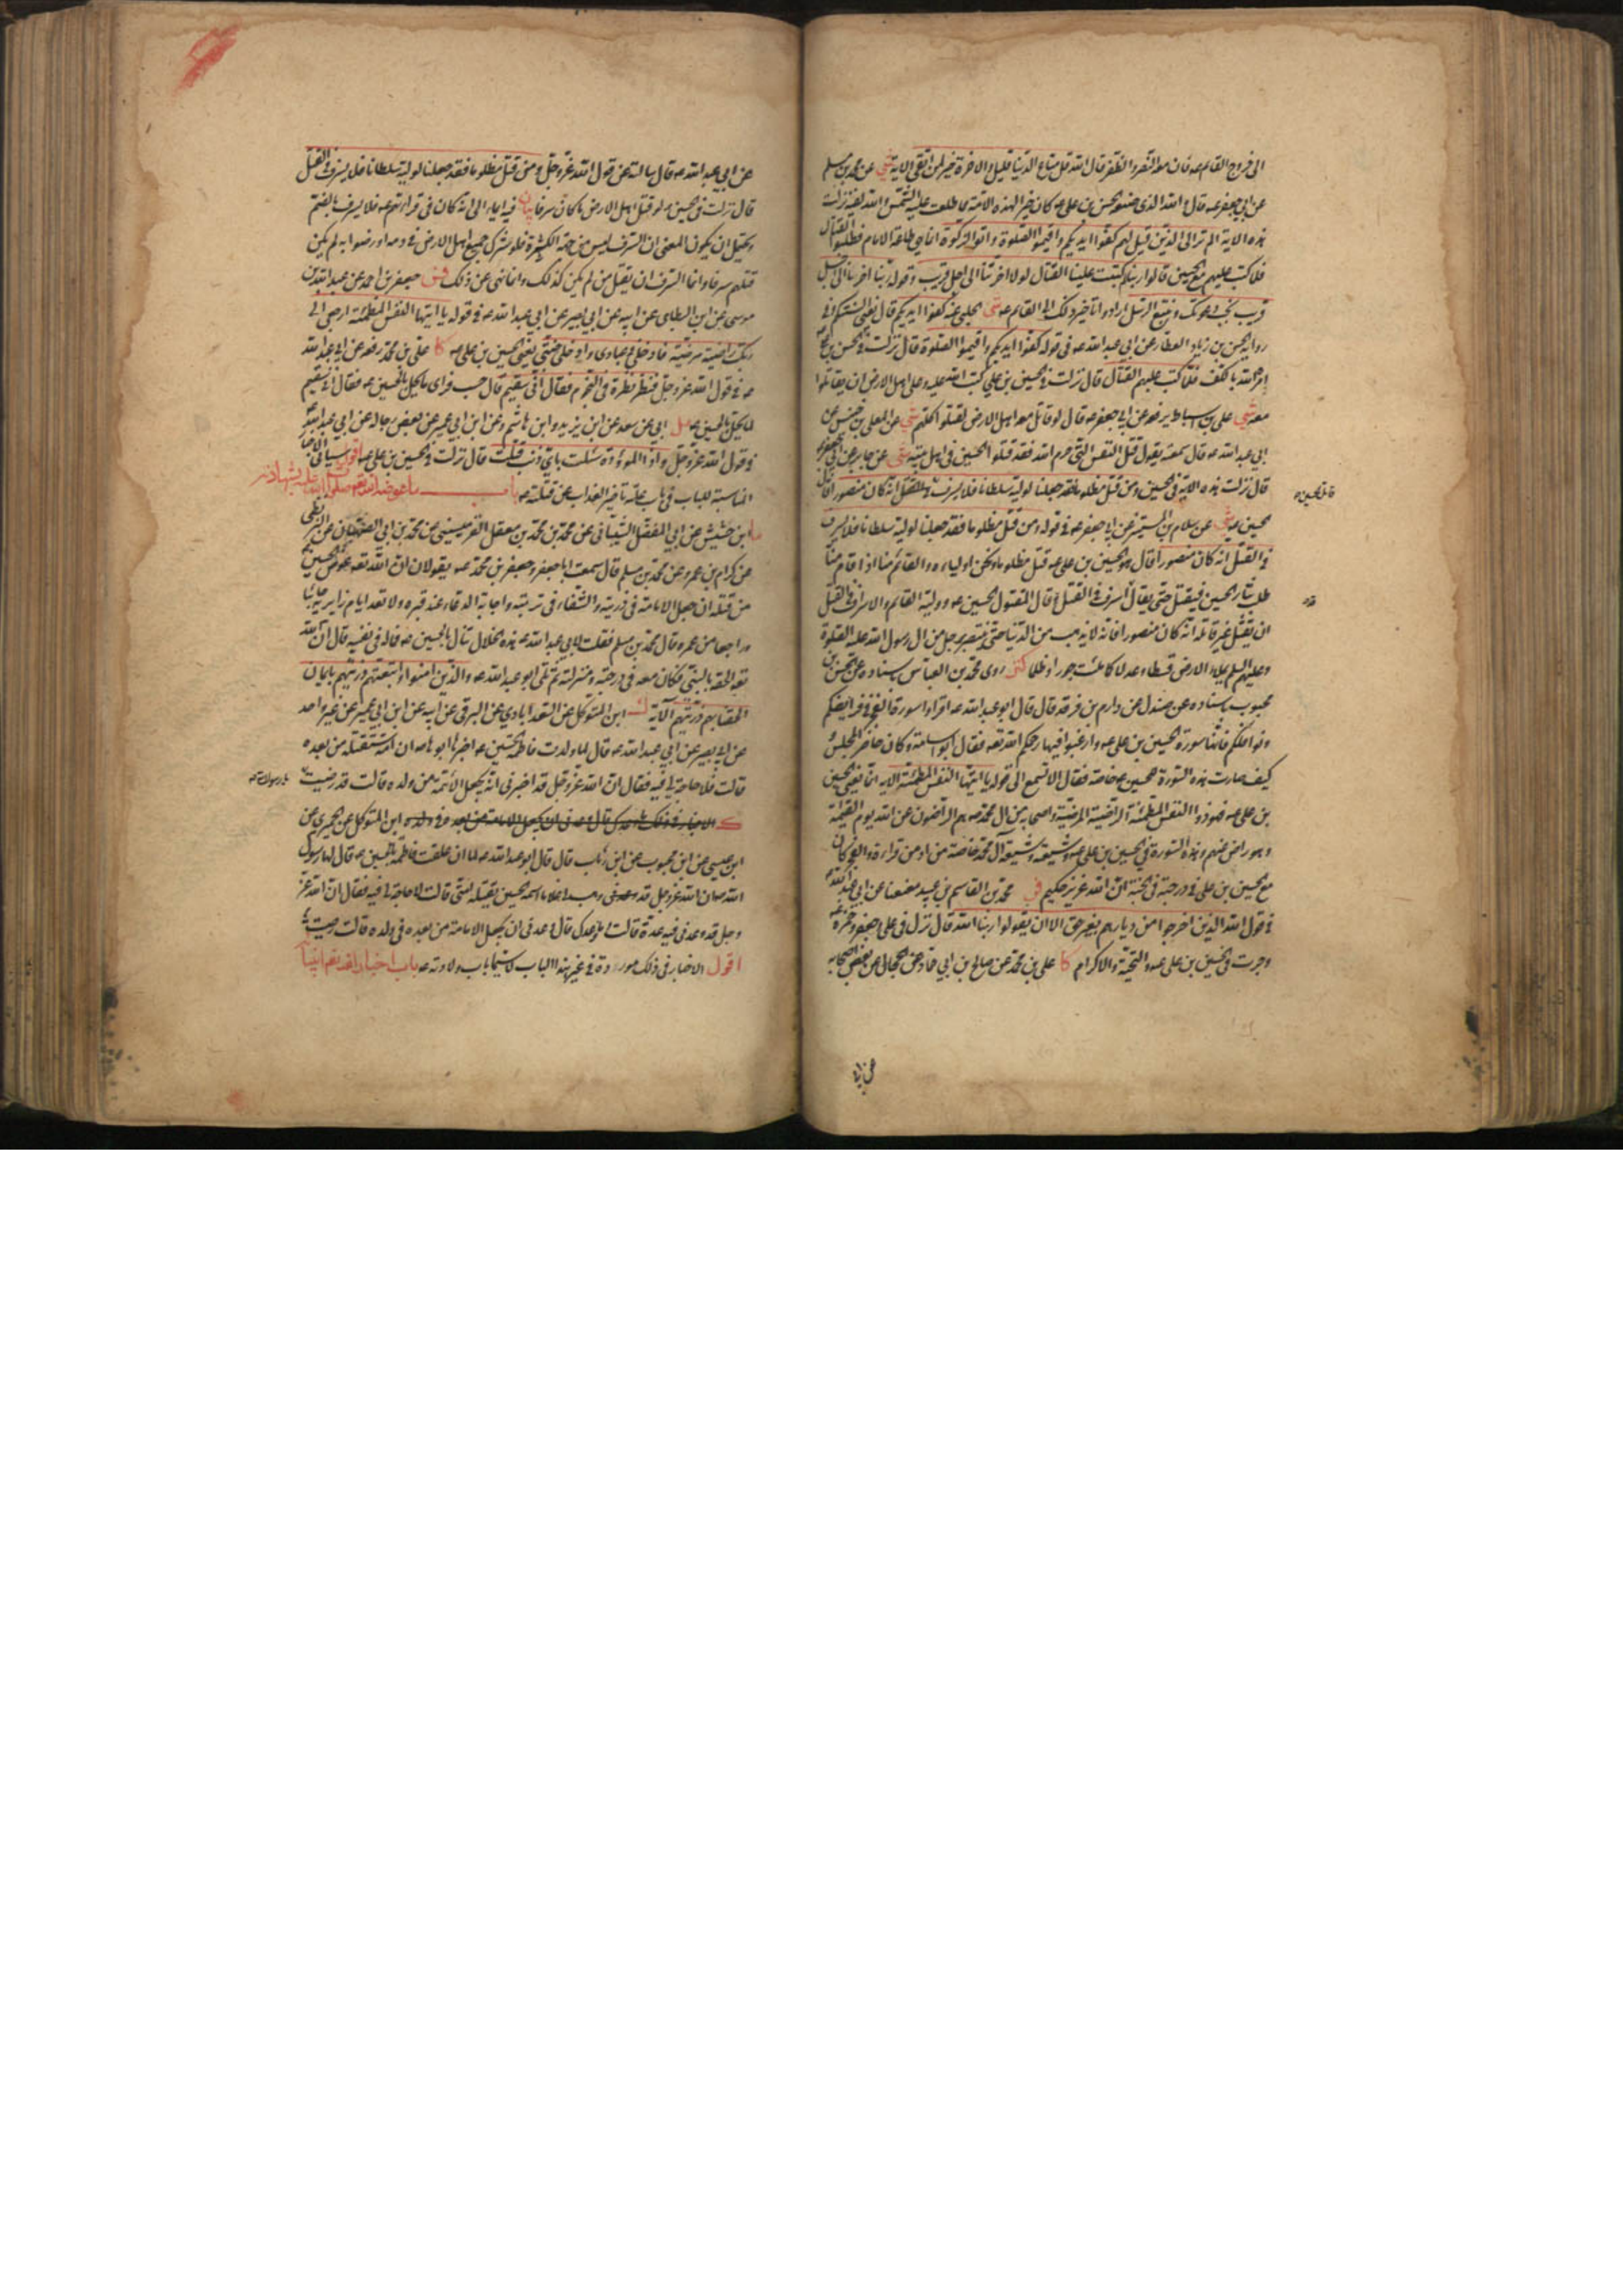 الى خروج القائم عه فان معه النصر والظفر قال الله قل متاع الدنيا قليل والاخرة خير لمن اتقى الاية شى عن محمد بن مسلم
عن ابي جعفر عه قال والله الذى صنعه الحسن بن علي عه كان خيرا لهذه الامة مما طلعت عليه الشمس والله لفيه نزلت
هذه الاية الم تر الى الذين قيل لهم كفوا ايديكم واقيموا الصلوة واتوا الزكوة انما هي طاعة الامام فطلبوا القتال
فلما كتب عليهم مع الحسين قالوا ربنا لم كتبت علينا القتال لولا اخرتنا الى اجل قريب وقوله ربنا اخرنا الى اجل
قريب نجب دعوتك ونتبع الرسل ارادوا تاخير ذلك الى القائم عه شى الحلبي عنه كفوا ايديكم قال يعني السنتكم وفى
رواية الحسن بن زياد العطار عن ابي عبد الله عه فى قوله كفوا ايديكم واقيموا الصلوة قال نزلت فى الحسن بن علي
امره الله بالكف فلما كتب عليهم القتال قال نزلت فى الحسين بن علي كتب الله عليه وعلى اهل الارض ان يقاتلوا
معه شي علي بن اسباط يرفعه عن ابي جعفر عه قال لو قاتل معه اهل الارض لقتلوا كلهم شي عن المعلى بن خنيس عن
ابي عبد الله عه قال سمعته يقول قتل النفس التي حرم الله فقد قتلوا الحسين فى اهل بيته شى عن جابر عن ابي جعفر عه
قال نزلت هذه الاية فى الحسين ومن قتل مظلوما فقد جعلنا لوليه سلطانا فلا يسرف فى القتل انه كان منصورا قال
قاتل الحسين عه
الحسين عه شي عن سلام بن المستنير عن ابي جعفر عه فى قوله ومن قتل مظلوما فقد جعلنا لوليه سلطانا فلا يسرف
فى القتل انه كان منصورا قال هو الحسين بن علي عه قتل مظلوما ونحن اولياءه والقائم منا اذا قام منا
طلب بثار الحسين فيقتل حتى يقال اسرف فى القتل قال المقتول الحسين عه ووليه القائم والاسراف فى القتل
ان يقتل غير قاتله انه كان منصورا فانه لا يذهب من الدنيا حتى ينتصر برجل من ال رسول الله عليه الصلوة
وعليهم السلم يملاء الارض قسطا وعدلا كما ملئت جورا وظلما كنز روى محمد بن العباس باسناده عن الحسن بن
محبوب باسناده عن صندل عن دارم بن فرقد قال قال ابو عبد الله عه اقراوا سورة الفجر فى فرايضكم
ونوافلكم فانها سورة الحسين بن علي عه وارغبوا فيها رحمكم الله تعه فقال له ابو اسامة وكان حاضر المجلس
كيف صارت هذه السورة للحسين عه خاصة فقال الا تسمع الى قوله يا ايتها النفس المطمئنة الاية انما يعني الحسين
بن علي عه فهو ذو النفس المطمئنة الراضية المرضية واصحابه من ال محمد صه هم الراضون عن الله يوم القيمة
وهو راض عنهم وهذه السورة فى الحسين بن علي عه وشيعته وشيعة آل محمد خاصة من ادمن قراءة والفجر كان
مع الحسين بن علي فى درجته فى الجنة ان الله عزيز حكيم فر محمد بن القاسم بن عبيد معنعنا عن ابي عبد الله عه
فى قول الله الذين اخرجوا من ديارهم بغير حق الا ان يقولوا ربنا الله قال نزل فى علي وجعفر وحمزة
وجرت فى الحسين بن علي عه والتحية والاكرام كا علي بن محمد عن صالح بن ابي حماد عن الحجال عن بعض اصحابه
عن ابي
عن ابي عبد الله عه قال سالته عن قول الله عز وجل ومن قتل مظلوما فقد جعلنا لوليه سلطانا فلا يسرف فى القتل
قال نزلت فى الحسين عه لو قتل اهل الارض به ما كان سرفا بيان فيه ايماء الى انه كان فى قراءتهم عه فلا يسرف بالضم
ويحتمل ان يكون المعنى ان السرف ليس من جهة الكثرة فلو شرك جميع اهل الارض فى دمه او رضوا به لم يكن
قتلهم سرفا وانما السرف ان يقتل من لم يكن كذلك وانما نهي عن ذلك فس جعفر بن احمد عن عبد الله بن
موسى عن ابن البطائنى عن ابيه عن ابي بصير عن ابي عبد الله عه فى قوله يا ايتها النفس المطمئنة ارجعي الى
ربك راضية مرضية فادخلي فى عبادى وادخلي جنتى يعني الحسين بن علي عه كا علي بن محمد رفعه عن ابي عبد الله
عه فى قول الله عز وجل فنظر نظرة فى النجوم فقال اني سقيم قال حسب فراى ما يحل بالحسين عه فقال انى سقيم
لما يحل بالحسين عه مل ابي عن سعد عن ابن يزيد وابن هاشم عن ابن ابي عمير عن بعض رجاله عن ابي عبد الله
فى قول الله عز وجل واذا الموؤدة سئلت باي ذنب قتلت قال نزلت فى الحسين بن علي عه اقول سياتي الاخبار
المناسبة للباب فى باب علة تاخير العذاب عن قتلته عه باب ما عوضه الله تعه صلوات الله عليه بشهادته
ما ابن حشيش عن ابي المفضل الشيباني عن محمد بن محمد بن معقل القرميسيني عن محمد بن ابي الصهبان عن البزنطي
عن كرام بن عمرو عن محمد بن مسلم قال سمعت ابا جعفر وجعفر بن محمد عه يقولان ان الله تعه عوض الحسين
من قتله ان جعل الامامة فى ذريته والشفاء فى تربته واجابة الدعاء عند قبره ولا تعد ايام زايريه جائيا
وراجعا من عمره قال محمد بن مسلم فقلت لابي عبد الله عه هذه الخلال تنال بالحسين عه فماله فى نفسه قال ان الله
تعه الحقه بالنبي فكان معه فى درجته ومنزلته ثم تلى ابو عبد الله عه والذين امنوا واتبعتهم ذريتهم بايمان
الحقنا بهم ذريتهم الآية ك ابن المتوكل عن السعد ابادي عن البرقي عن ابيه عن ابن ابي عمير عن غير واحد
عن ابي بصير عن ابي عبد الله عه قال لما ولدت فاطمة الحسين عه اخبرها ابوها صه ان امته ستقتله من بعده
قالت فلا حاجة لي فيه فقال ان الله عز وجل قد اخبرني انه يجعل الائمة من ولده قالت قد رضيت
يا رسول الله صه
ك ابن المتوكل عن الحميري عن
ابن عيسى عن ابن محبوب عن ابن رئاب قال قال ابو عبد الله عه لما ان علقت فاطمة بالحسين عه قال لها رسول
الله صه ان الله عز وجل قد وهب لك غلاما اسمه الحسين يقتله امتى قالت لا حاجة لي فيه فقال ان الله عز
وجل قد وعدنى فيه عدة قالت وما وعدك قال وعدنى ان يجعل الامامة من بعده فى ولده قالت رضيت
اقول الاخبار فى ذلك موردة فى غير هذا الباب لا سيما باب ولادته عه باب اخبار الله تعه انبياءه